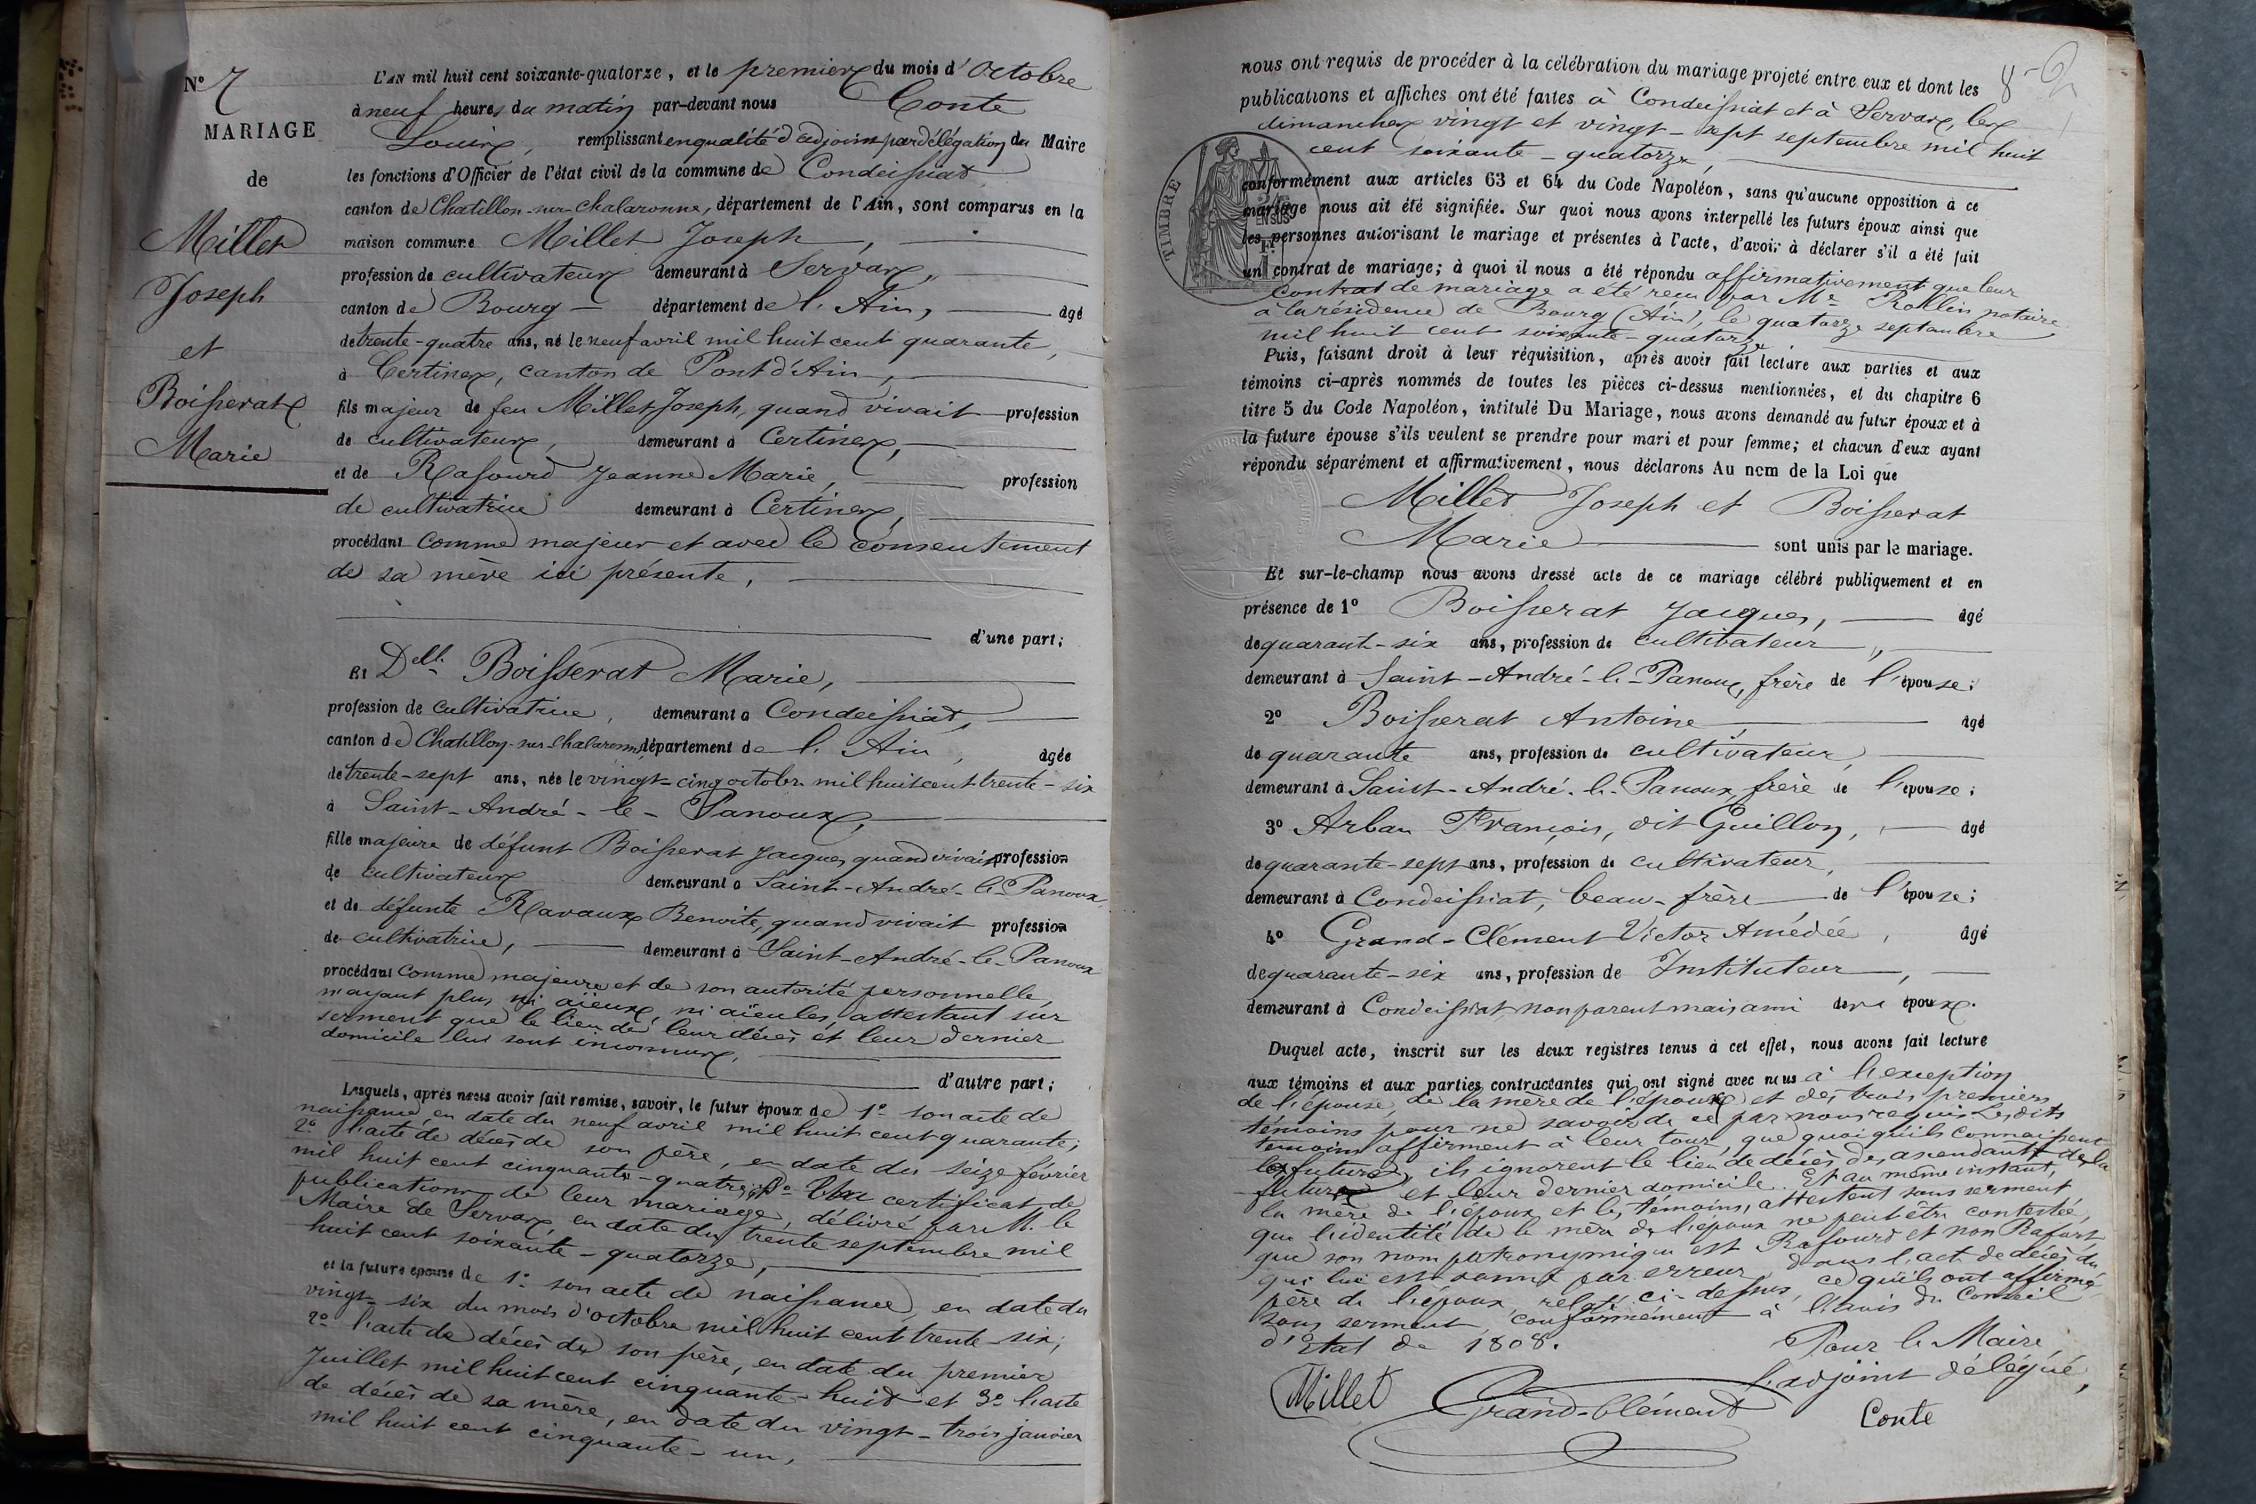 N° 7
MARIAGE
de
Millet
Joseph
et
Boisserat
Marie
L'AN mil huit cent soixante-quatorze, et le premier du mois d'Octobre
à neuf heures du matin par-devant nous Conte
Louis, remplissant en qualité d'adjoint par délégation du Maire
les fonctions d'Officier de l'état civil de la commune de Condeissiat
canton de Chatillon-sur-Chalaronne, département de l'Ain, sont comparus en la
maison commune Millet Joseph,
profession de cultivateur demeurant à Servas,
canton de Bourg département de l'Ain, âgé
de trente-quatre ans, né le neuf avril mil huit cent quarante,
à Certines, canton de Pont d'Ain,
fils majeur de feu Millet Joseph, quand vivait profession
de cultivateur, demeurant à Certines,
et de Rafourd Jeanne Marie, profession
de cultivatrice demeurant à Certines,
procédant comme majeur et avec le consentement
de sa mère ici présente,
d'une part;
Et Delle Boisserat Marie,
profession de cultivatrice, demeurant à Condeissiat,
canton de Chatillon-sur-Chalaronne, département de l'Ain, âgée
de trente-sept ans, née le vingt-cinq octobre mil huit cent trente-six
à Saint-André-le-Panoux,
fille majeure de défunt Boisserat Jacques, quand vivait profession
de cultivateur demeurant à Saint-André-le-Panoux,
et de défunte Ravaux Benoite, quand vivait profession
de cultivatrice, demeurant à Saint-André-le-Panoux
procédant comme majeure et de son autorité personnelle,
n'ayant plus ni aïeux, ni aïeules, attestant sur
serment que le lieu de leur décès et leur dernier
domicile lui sont inconnus,
d'autre part;
Lesquels, après nous avoir fait remise, savoir, le futur époux de 1° son acte de
naissance, en date du neuf avril mil huit cent quarante;
2° l'acte de décès de son père, en date du seize février
mil huit cent cinquante-quatre; 3° Un certificat de
publications de leur mariage, délivré par M. le
Maire de Servas, en date du trente septembre mil
huit cent soixante-quatorze,
et la future épouse de 1° son acte de naissance, en date du
vingt-six du mois d'octobre mil huit cent trente-six;
2° l'acte de décès de son père, en date du premier
Juillet mil huit cent cinquante-huit et 3° l'acte
de décès de sa mère, en date du vingt-trois janvier
mil huit cent cinquante-un,
nous ont requis de procéder à la célébration du mariage projeté entre eux et dont les
publications et affiches ont été faites à Condeissiat et à Servas, les
dimanches vingt et vingt-sept septembre mil huit
cent soixante-quatorze,
TIMBRE
conformément aux articles 63 et 64 du Code Napoléon, sans qu'aucune opposition à ce
mariage nous ait été signifiée. Sur quoi nous avons interpellé les futurs époux ainsi que
les personnes autorisant le mariage et présentes à l'acte, d'avoir à déclarer s'il a été fait
un contrat de mariage; à quoi il nous a été répondu affirmativement que leur
contrat de mariage a été reçu par Me Rollin notaire
à la résidence de Bourg (Ain), le quatorze septembre
mil huit cent soixante-quatorze
Puis, faisant droit à leur réquisition, après avoir fait lecture aux parties et aux
témoins ci-après nommés de toutes les pièces ci-dessus mentionnées, et du chapitre 6
titre 5 du Code Napoléon, intitulé Du Mariage, nous avons demandé au futur époux et à
la future épouse s'ils veulent se prendre pour mari et pour femme; et chacun d'eux ayant
répondu séparément et affirmativement, nous déclarons Au nom de la Loi que
Millet Joseph et Boisserat
Marie sont unis par le mariage.
Et sur-le-champ nous avons dressé acte de ce mariage célébré publiquement et en
présence de 1° Boisserat Jacques, âgé
de quarant-six ans, profession de cultivateur,
demeurant à Saint-André-le-Panoux, frère de l'épouse;
2° Boisserat Antoine âgé
de quarante ans, profession de cultivateur,
demeurant à Saint-André-le-Panoux, frère de l'épouse;
3° Arban François, dit Guillon, âgé
de quarante-sept ans, profession de cultivateur,
demeurant à Condeissiat, beau-frère de l'épouse;
4° Grand-Clément Victor Amédée, âgé
de quarante-six ans, profession de Instituteur,
demeurant à Condeissiat, non parent mais ami des époux.
Duquel acte, inscrit sur les deux registres tenus à cet effet, nous avons fait lecture
aux témoins et aux parties contractantes qui ont signé avec nous à l'exception
de l'épouse, de la mère de l'époux et des trois premiers
témoins pour ne savoir de ce par nous requis. Lesdits
témoins affirment à leur tour, que quoiqu'ils connaissent
les futurs, ils ignorent le lieu de décès des ascendants de la
future et leur dernier domicile. Et au même instant,
la mère de l'époux et les témoins, attestent sous serment
que l'identité de la mère de l'époux ne peut être contestée,
que son nom patronymique est Rafourd et non Rafurt
qui lui est donné par erreur dans l'acte de décès du
père de l'époux, relaté ci-dessus, ce qu'ils ont affirmé
sous serment, conformément à l'avis du Conseil
d'Etat de 1808.
Pour le Maire,
l'adjoint délégué,
Millet Grand-Clément Conte